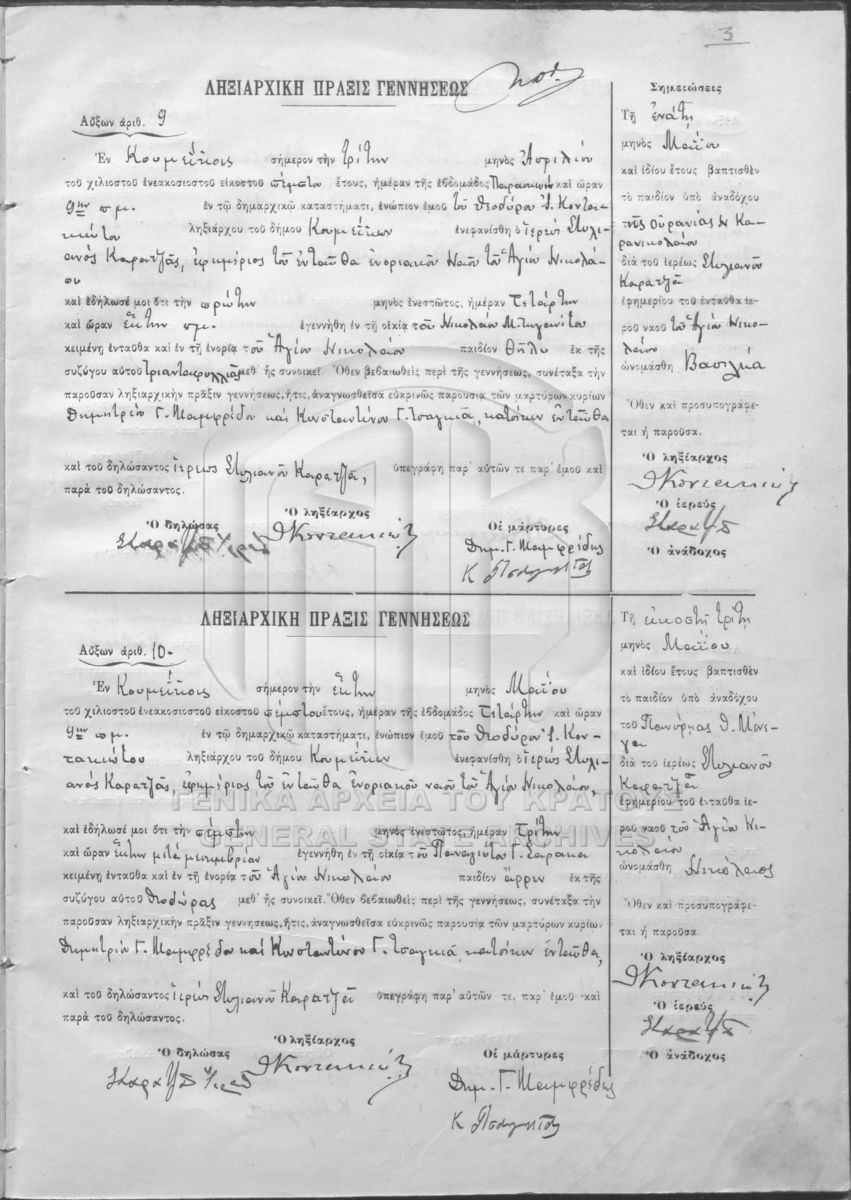 3
ΛΗΞΙΑΡΧΙΚΗ ΠΡΑΞΙΣ ΓΕΝΝΗΣΕΩΣ
Αὔξων ἀριθ. 9
Ἐν Κουμεΐκοις σήμερον τὴν τρίτην μηνὸς Ἀπριλίου
τοῦ χιλιοστοῦ ἐνεακοσιοστοῦ εἰκοστοῦ πέμπτου ἔτους, ἡμέραν τῆς ἑβδομάδος Παρασκευὴν καὶ ὥραν
9ην πμ. ἐν τῷ δημαρχικῷ καταστήματι, ἐνώπιον ἐμοῦ τοῦ Θεοδώρου Ἰ. Κοντα-
κιώτου ληξιάρχου τοῦ δήμου Κουμεΐκων ἐνεφανίσθη ὁ ἱερεὺς Στυλι-
ανὸς Καρατζᾶς, ἐφημέριος τοῦ ἐνταῦθα ἐνοριακοῦ Ναοῦ τοῦ Ἁγίου Νικολά-
ου
καὶ ἐδήλωσέ μοι ὅτι τὴν πρώτην μηνὸς ἐνεστῶτος, ἡμέραν Τετάρτην
καὶ ὥραν ἕκτην πμ. ἐγεννήθη ἐν τῇ οἰκίᾳ τοῦ Νικολάου
κειμένῃ ἐνταῦθα καὶ ἐν τῇ ἐνορίᾳ τοῦ Ἁγίου Νικολάου παιδίον θῆλυ ἐκ τῆς
συζύγου αὐτοῦ Τριανταφυλλιᾶς μεθ' ἧς συνοικεῖ. Ὅθεν βεβαιωθεὶς περὶ τῆς γεννήσεως, συνέταξα τὴν
παροῦσαν ληξιαρχικὴν πρᾶξιν γεννήσεως, ἥτις, ἀναγνωσθεῖσα εὐκρινῶς παρουσίᾳ τῶν μαρτύρων κυρίων
Δημητρίου Γ. Μαμφρέδου καὶ Κωνσταντίνου Γ. Τσαγκιᾶ, κατοίκων ἐνταῦθα
καὶ τοῦ δηλώσαντος ἱερέως Στυλιανοῦ Καρατζᾶ, ὑπεγράφη παρ' αὐτῶν τε παρ' ἐμοῦ καὶ
παρὰ τοῦ δηλώσαντος.
Ὁ δηλώσας Ὁ ληξίαρχος Οἱ μάρτυρες
ΘΚοντακιώτης
Δημ. Γ. Μαμφρέδης
Σημειώσεις
Τῇ ἐνάτῃ
μηνὸς Μαΐου
καὶ ἰδίου ἔτους βαπτισθὲν
τὸ παιδίον ὑπὸ ἀναδόχου
τῆς Οὐρανίας Ν Κα-
ρανικολάου
διὰ τοῦ ἱερέως Στυλιανοῦ
Καρατζᾶ
ἐφημερίου τοῦ ἐνταῦθα ἱε-
ροῦ ναοῦ τοῦ Ἁγίου Νικο-
λάου
ὠνομάσθη Βασιλικὰ
Ὅθεν καὶ προσυπογράφε-
ται ἡ παροῦσα.
Ὁ ληξίαρχος
ΘΚοντακιώτης
Ὁ ἱερεύς
Ὁ ἀνάδοχος
ΛΗΞΙΑΡΧΙΚΗ ΠΡΑΞΙΣ ΓΕΝΝΗΣΕΩΣ
Αὔξων ἀριθ. 10
Ἐν Κουμεΐκοις σήμερον τὴν ἕκτην μηνὸς Μαΐου
τοῦ χιλιοστοῦ ἐνεακοσιοστοῦ εἰκοστοῦ πέμπτου ἔτους, ἡμέραν τῆς ἑβδομάδος Τετάρτην καὶ ὥραν
9ην πμ. ἐν τῷ δημαρχικῷ καταστήματι, ἐνώπιον ἐμοῦ τοῦ Θεοδώρου Ἰ. Κον-
τακιώτου ληξιάρχου τοῦ δήμου Κουμεΐκων ἐνεφανίσθη ὁ ἱερεὺς Στυλι-
ανὸς Καρατζᾶς, ἐφημέριος τοῦ ἐνταῦθα ἐνοριακοῦ ναοῦ τοῦ Ἁγίου Νικολάου,
ΓΕΝΙΚΑ ΑΡΧΕΙΑ ΤΟΥ ΚΡΑΤΟΥΣ
καὶ ἐδήλωσέ μοι ὅτι τὴν πέμπτην μηνὸς ἐνεστῶτος, ἡμέραν Τρίτην
GENERAL STATE ARCHIVES
καὶ ὥραν ἕκτην μετὰ μεσημβρίαν ἐγεννήθη ἐν τῇ οἰκίᾳ τοῦ Παναγιώτου Γ. Σαρακα
κειμένῃ ἐνταῦθα καὶ ἐν τῇ ἐνορίᾳ τοῦ Ἁγίου Νικολάου παιδίον ἄρρεν ἐκ τῆς
συζύγου αὐτοῦ Θεοδώρας μεθ' ἧς συνοικεῖ. Ὅθεν βεβαιωθεὶς περὶ τῆς γεννήσεως, συνέταξα τὴν
παροῦσαν ληξιαρχικὴν πρᾶξιν γεννήσεως, ἥτις, ἀναγνωσθεῖσα εὐκρινῶς παρουσίᾳ τῶν μαρτύρων κυρίων
Δημητρίου Γ. Μαμφρέδου καὶ Κωνσταντίνου Γ. Τσαγκιᾶ, κατοίκων ἐνταῦθα,
καὶ τοῦ δηλώσαντος ἱερέως Στυλιανοῦ Καρατζᾶ ὑπεγράφη παρ' αὐτῶν τε, παρ' ἐμοῦ καὶ
παρὰ τοῦ δηλώσαντος.
Ὁ δηλώσας Ὁ ληξίαρχος Οἱ μάρτυρες
ΘΚοντακιώτης
Δημ. Γ. Μαμφρέδης
Τῇ εἰκοστῇ τρίτῃ
μηνὸς Μαΐου
καὶ ἰδίου ἔτους βαπτισθὲν
τὸ παιδίον ὑπὸ ἀναδόχου
τοῦ
διὰ τοῦ ἱερέως Στυλιανοῦ
Καρατζᾶ
ἐφημερίου τοῦ ἐνταῦθα ἱε-
ροῦ ναοῦ τοῦ Ἁγίου Νι-
κολάου
ὠνομάσθη Νικόλαος
Ὅθεν καὶ προσυπογράφε-
ται ἡ παροῦσα
Ὁ ληξίαρχος
ΘΚοντακιώτης
Ὁ ἱερεύς
Ὁ ἀνάδοχος